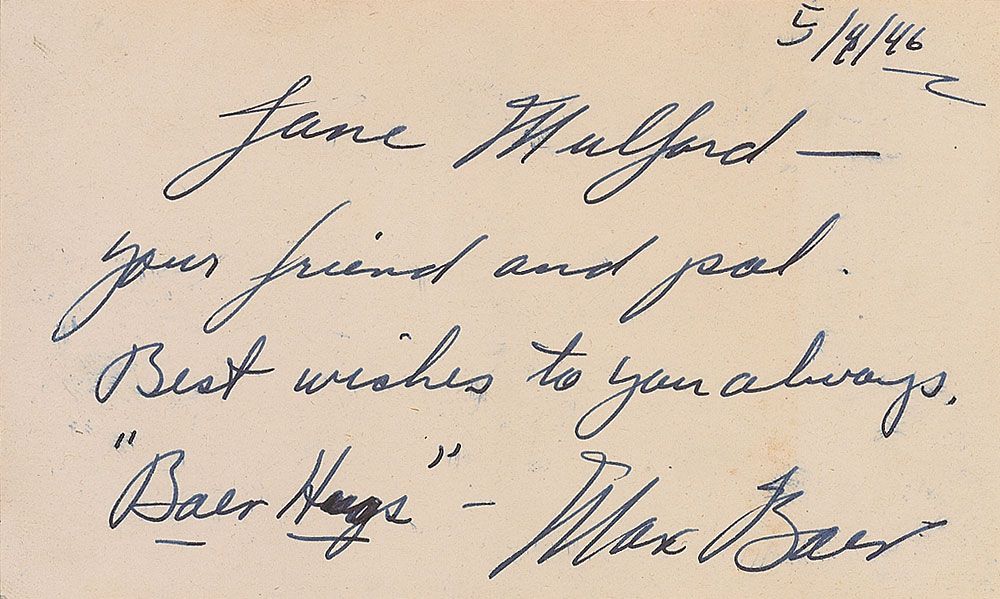 5/4/46
Jane Mulford —
your friend and pal.
Best wishes to you always.
"Baer Hugs" – Max Baer